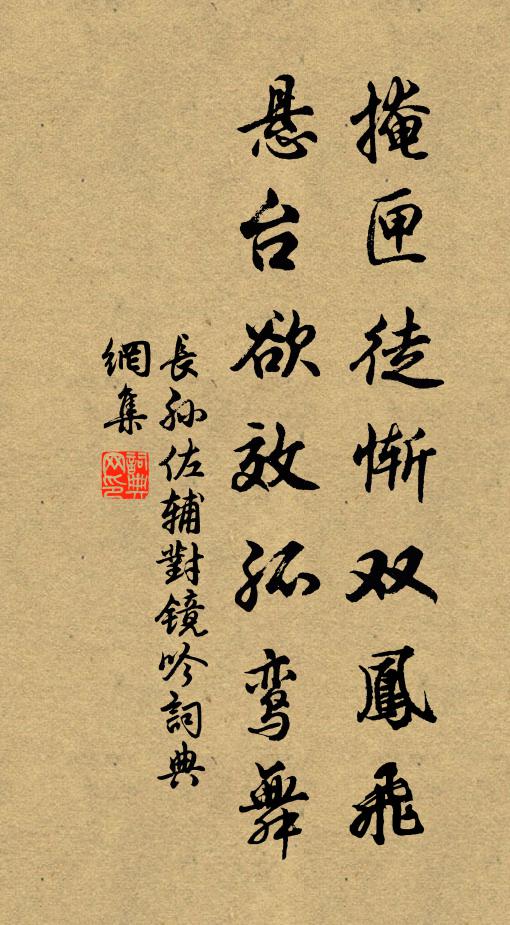 掩匣徒惭双鳳飛
悬台欲效孤鸾舞
長孙佐辅對镜吟詞典
網集
詞典网印